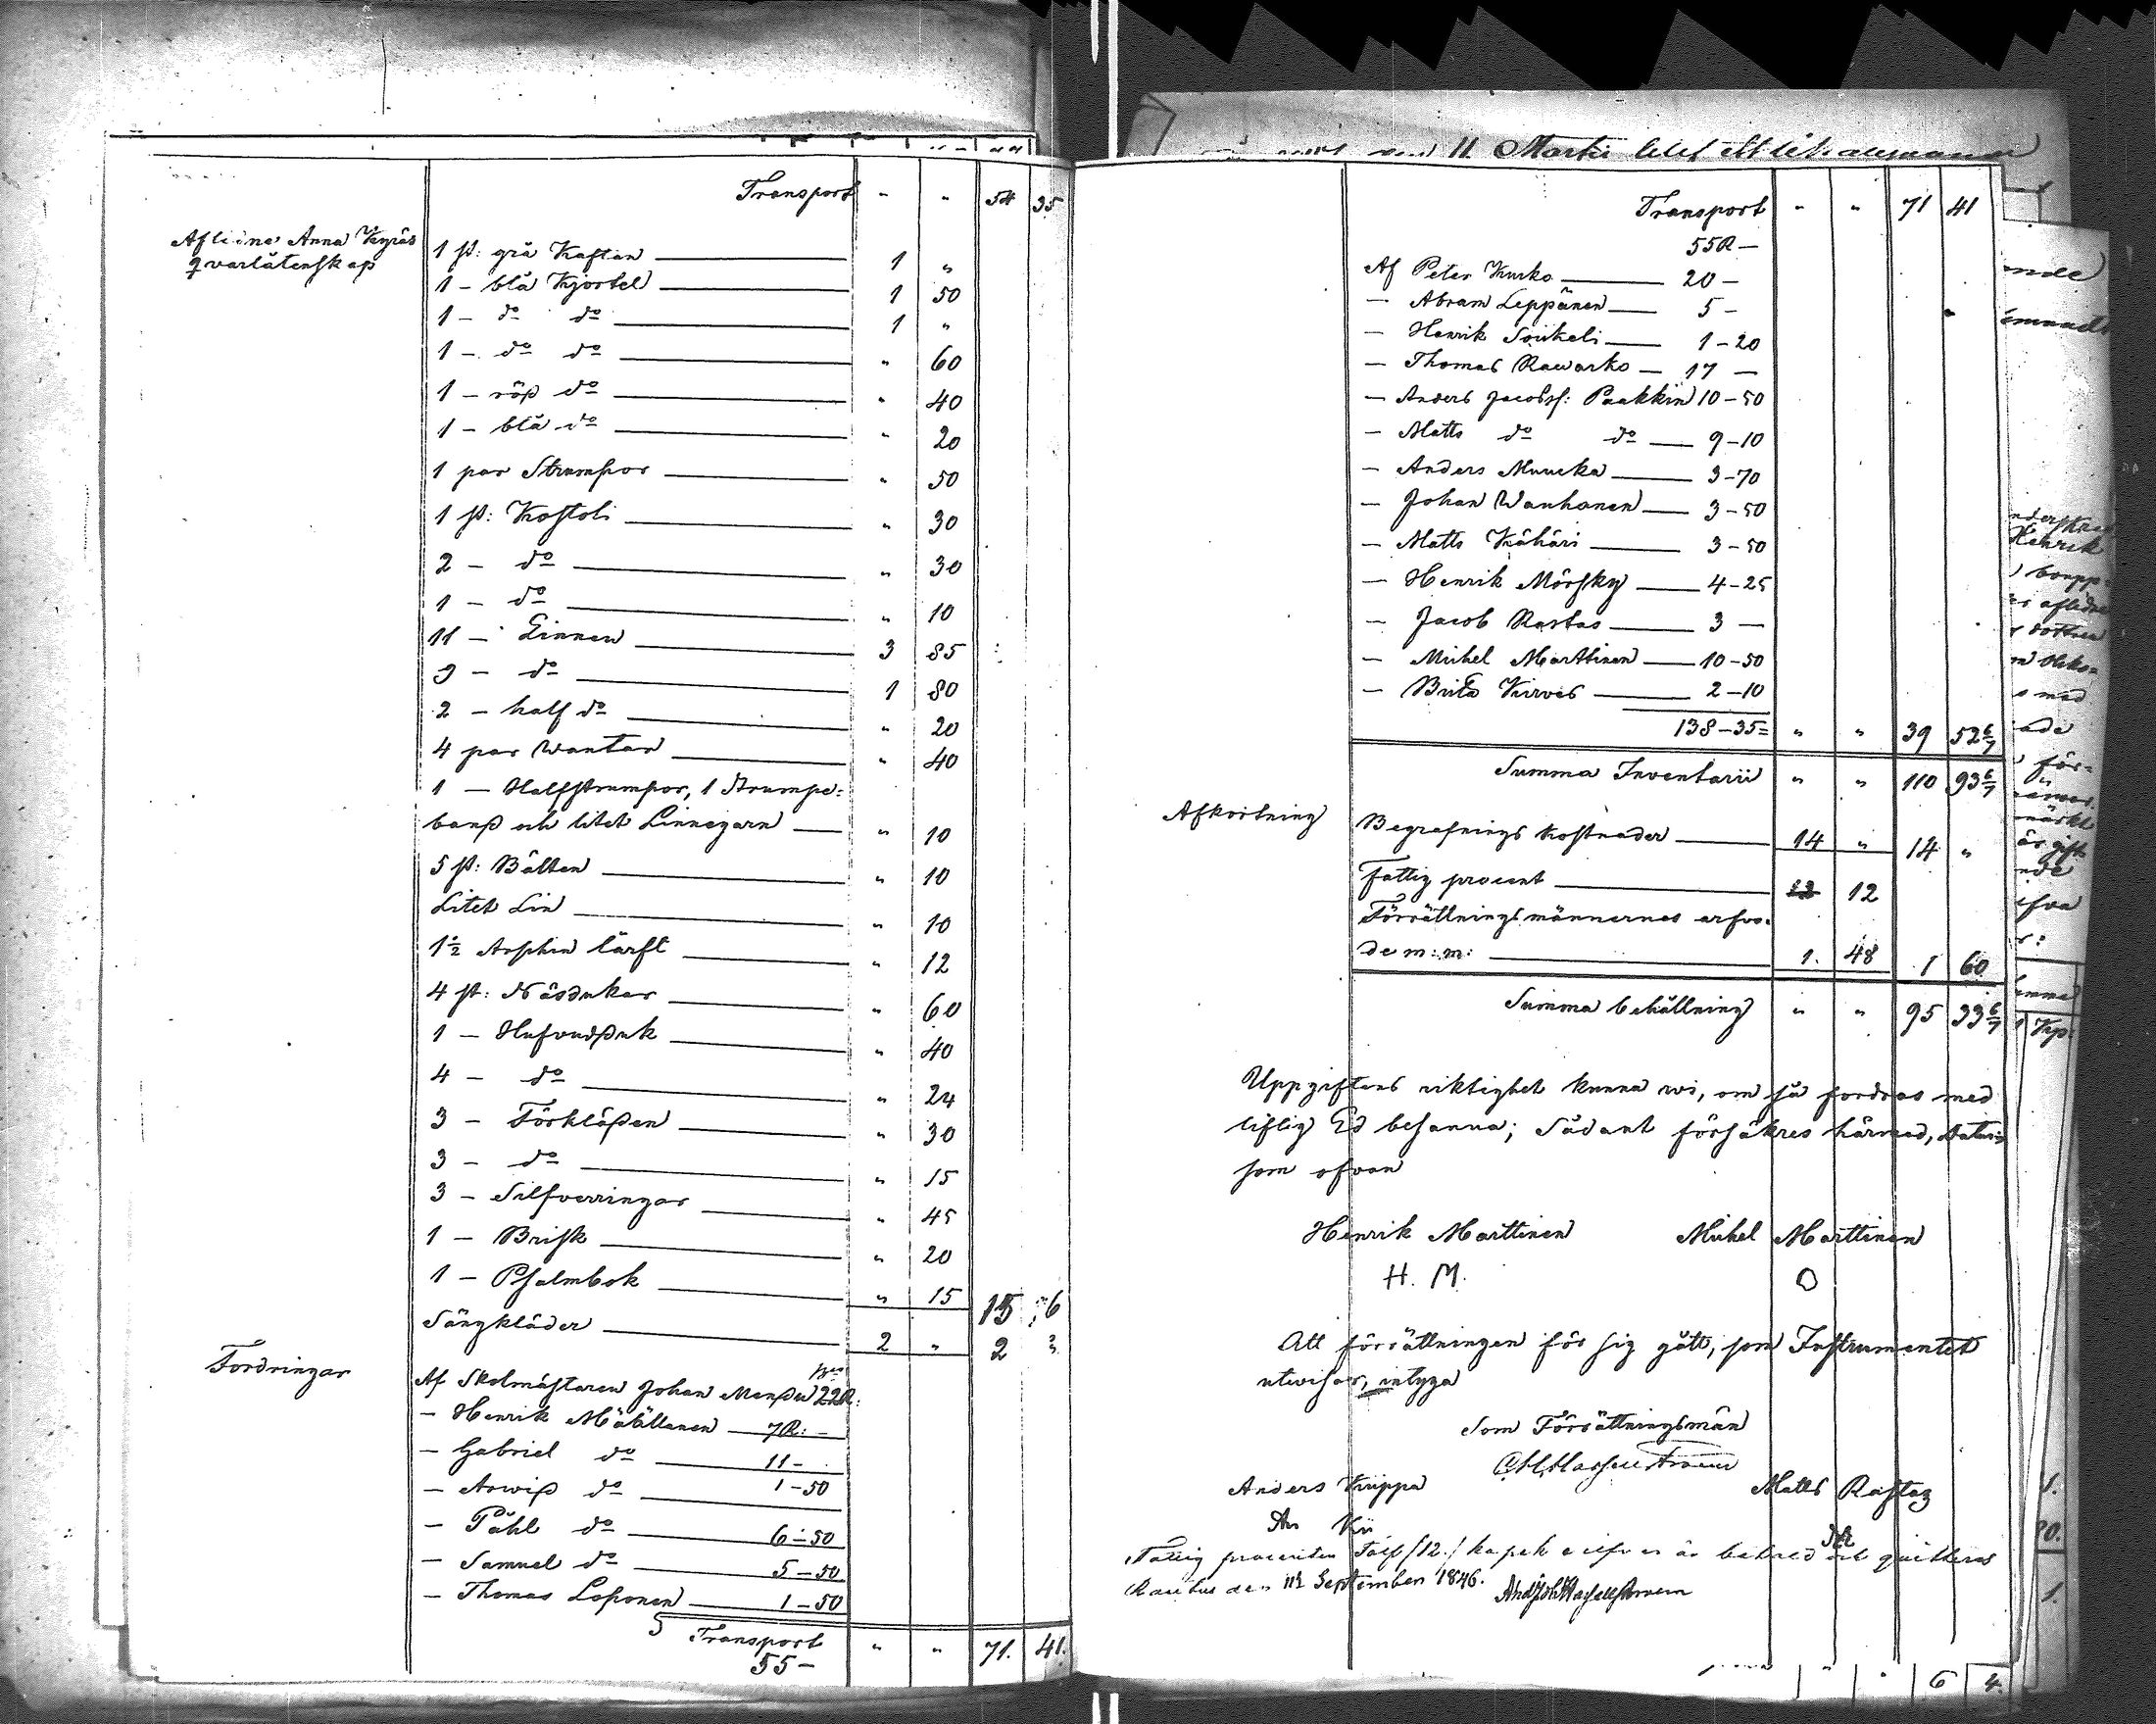 Transport " " 54 35
Aflidne Anna Kyräs
qvarlåtenskap
1 st: grå Kaftan 1 "
1 - blå Kjortel 1 50
1 - do do 1 "
1 - do do " 60
1 - röd do " 40
1 - blå do " 20
1 par Strumpor " 50
1 st: Kostoli " 30
2 - do " 30
1 - do " 10
11 - Linnen 3 85
9 - do 1 80
2 - half do " 20
4 par Wantar " 40
1 - Halfstrumpor, 1 Strumpe-
band och litet Linnegarn " 10
5 st: Bälten " 10
Litet Lin " 10
1½ Arschin lärft " 12
4 st: Näsdukar " 60
1 - Hufvudduk " 40
4 - do " 24
3 - Förkläden " 30
3 - do " 15
3 - Silfverringar " 45
1 - Brisk " 20
1 - Psalmbok " 15 15 6
Sängkläder 2 " 2 "
Fordringar
Af Skolmästaren Johan 22R:
- Henrik Määttänen 7R: -
- Gabriel do 11 -
- Arwid do 1-50
- Påhl do 6-50
- Samuel do 5-50
- Thomas Loponen 1-50
Transport " " 71. 41.
55 -
11 Martii
Transport " " 71 41
55R -
Af Peter Kurko 20 -
- Abram Leppänen 5 -
- Henrik Soikeli 1-20
- Thomas Rawarko 17 -
- Anders Jacobsf: Paakkin 10-50
- Matts do do 9-10
- Anders Muucka 3-70
- Johan Wanhanen 3-50
- Matts Kähäri 3-50
- Henrik Mörsky 4-25
- Jacob Rastas 3 -
- Michel Marttinen 10-50
- Brita Kirves 2-10
138-35= " " 39 52 6/7
Summa Inventarii " " 110 93 6/7
Afkortning
Begrafnings kostnader 14 " 14 "
Fattig procent 12
Förrättningsmännernes arfvo-
de m:m: 1. 48 1 60
Summa behållning " " 95 33 6/7
Uppgiftens riktighet kunna wi, om så fordras med
liflig Ed besanna; Sådant försäkres härmed, datum
som ofvan
Henrik Marttinen Michel Marttinen
H. M. O
Att förrättningen för sig gått, som Instrumentet
utvisar, intyga
Som Förrättningsmän
Anders Kiippa Matts Rastas
An Kii
Fattig procenten Tolf /12./ kopek silfver är betald och quitteras
Rautus den 11 September 1846.
6 4